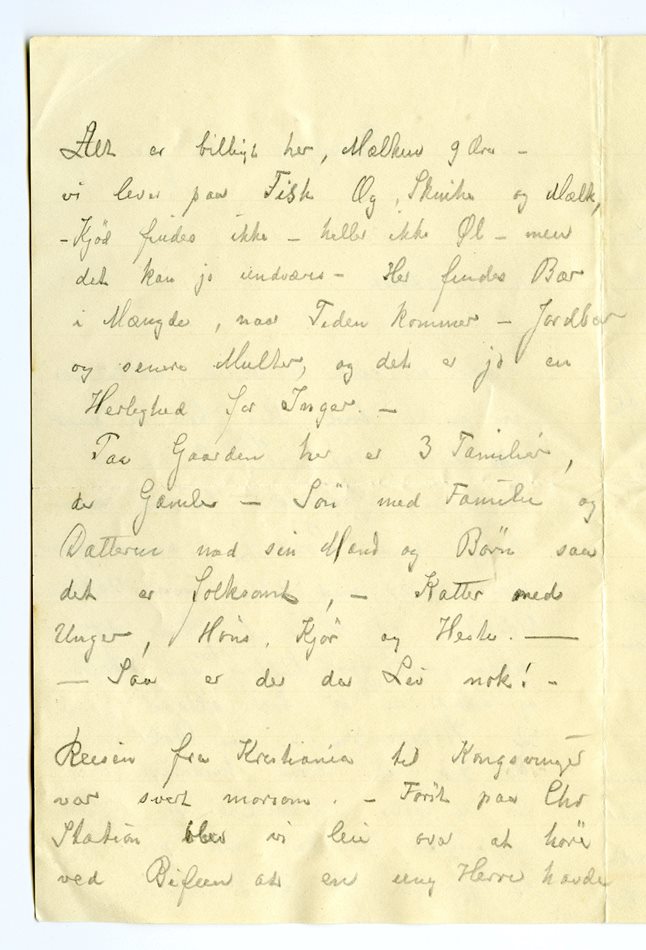 Alt er billigt her, Melken 9 Øre -
vi lever paa Fisk Æg, Skinke og Melk,
- Kjød findes ikke - heller ikke Øl - men
det kan jo undværes - Her findes Bær
i Mængde, naar Tiden kommer - Jordbær
og senere Multer, og det er jo en
Herlighed for Inger. -
Paa Gaarden her er 3 Familier,
de Gamle - Sön med Familie og
Datteren med sin Mand og Börn saa
det er folksomt, - Katter med
Unger, Höns, Kjör og Heste. -
- Saa er der da Liv nok! -
Reisen fra Kristiania til Kongsvinger
var svert morsom. - Först paa
Station blev vi leie over at höre
ved Bufeen at en ung Herre havde